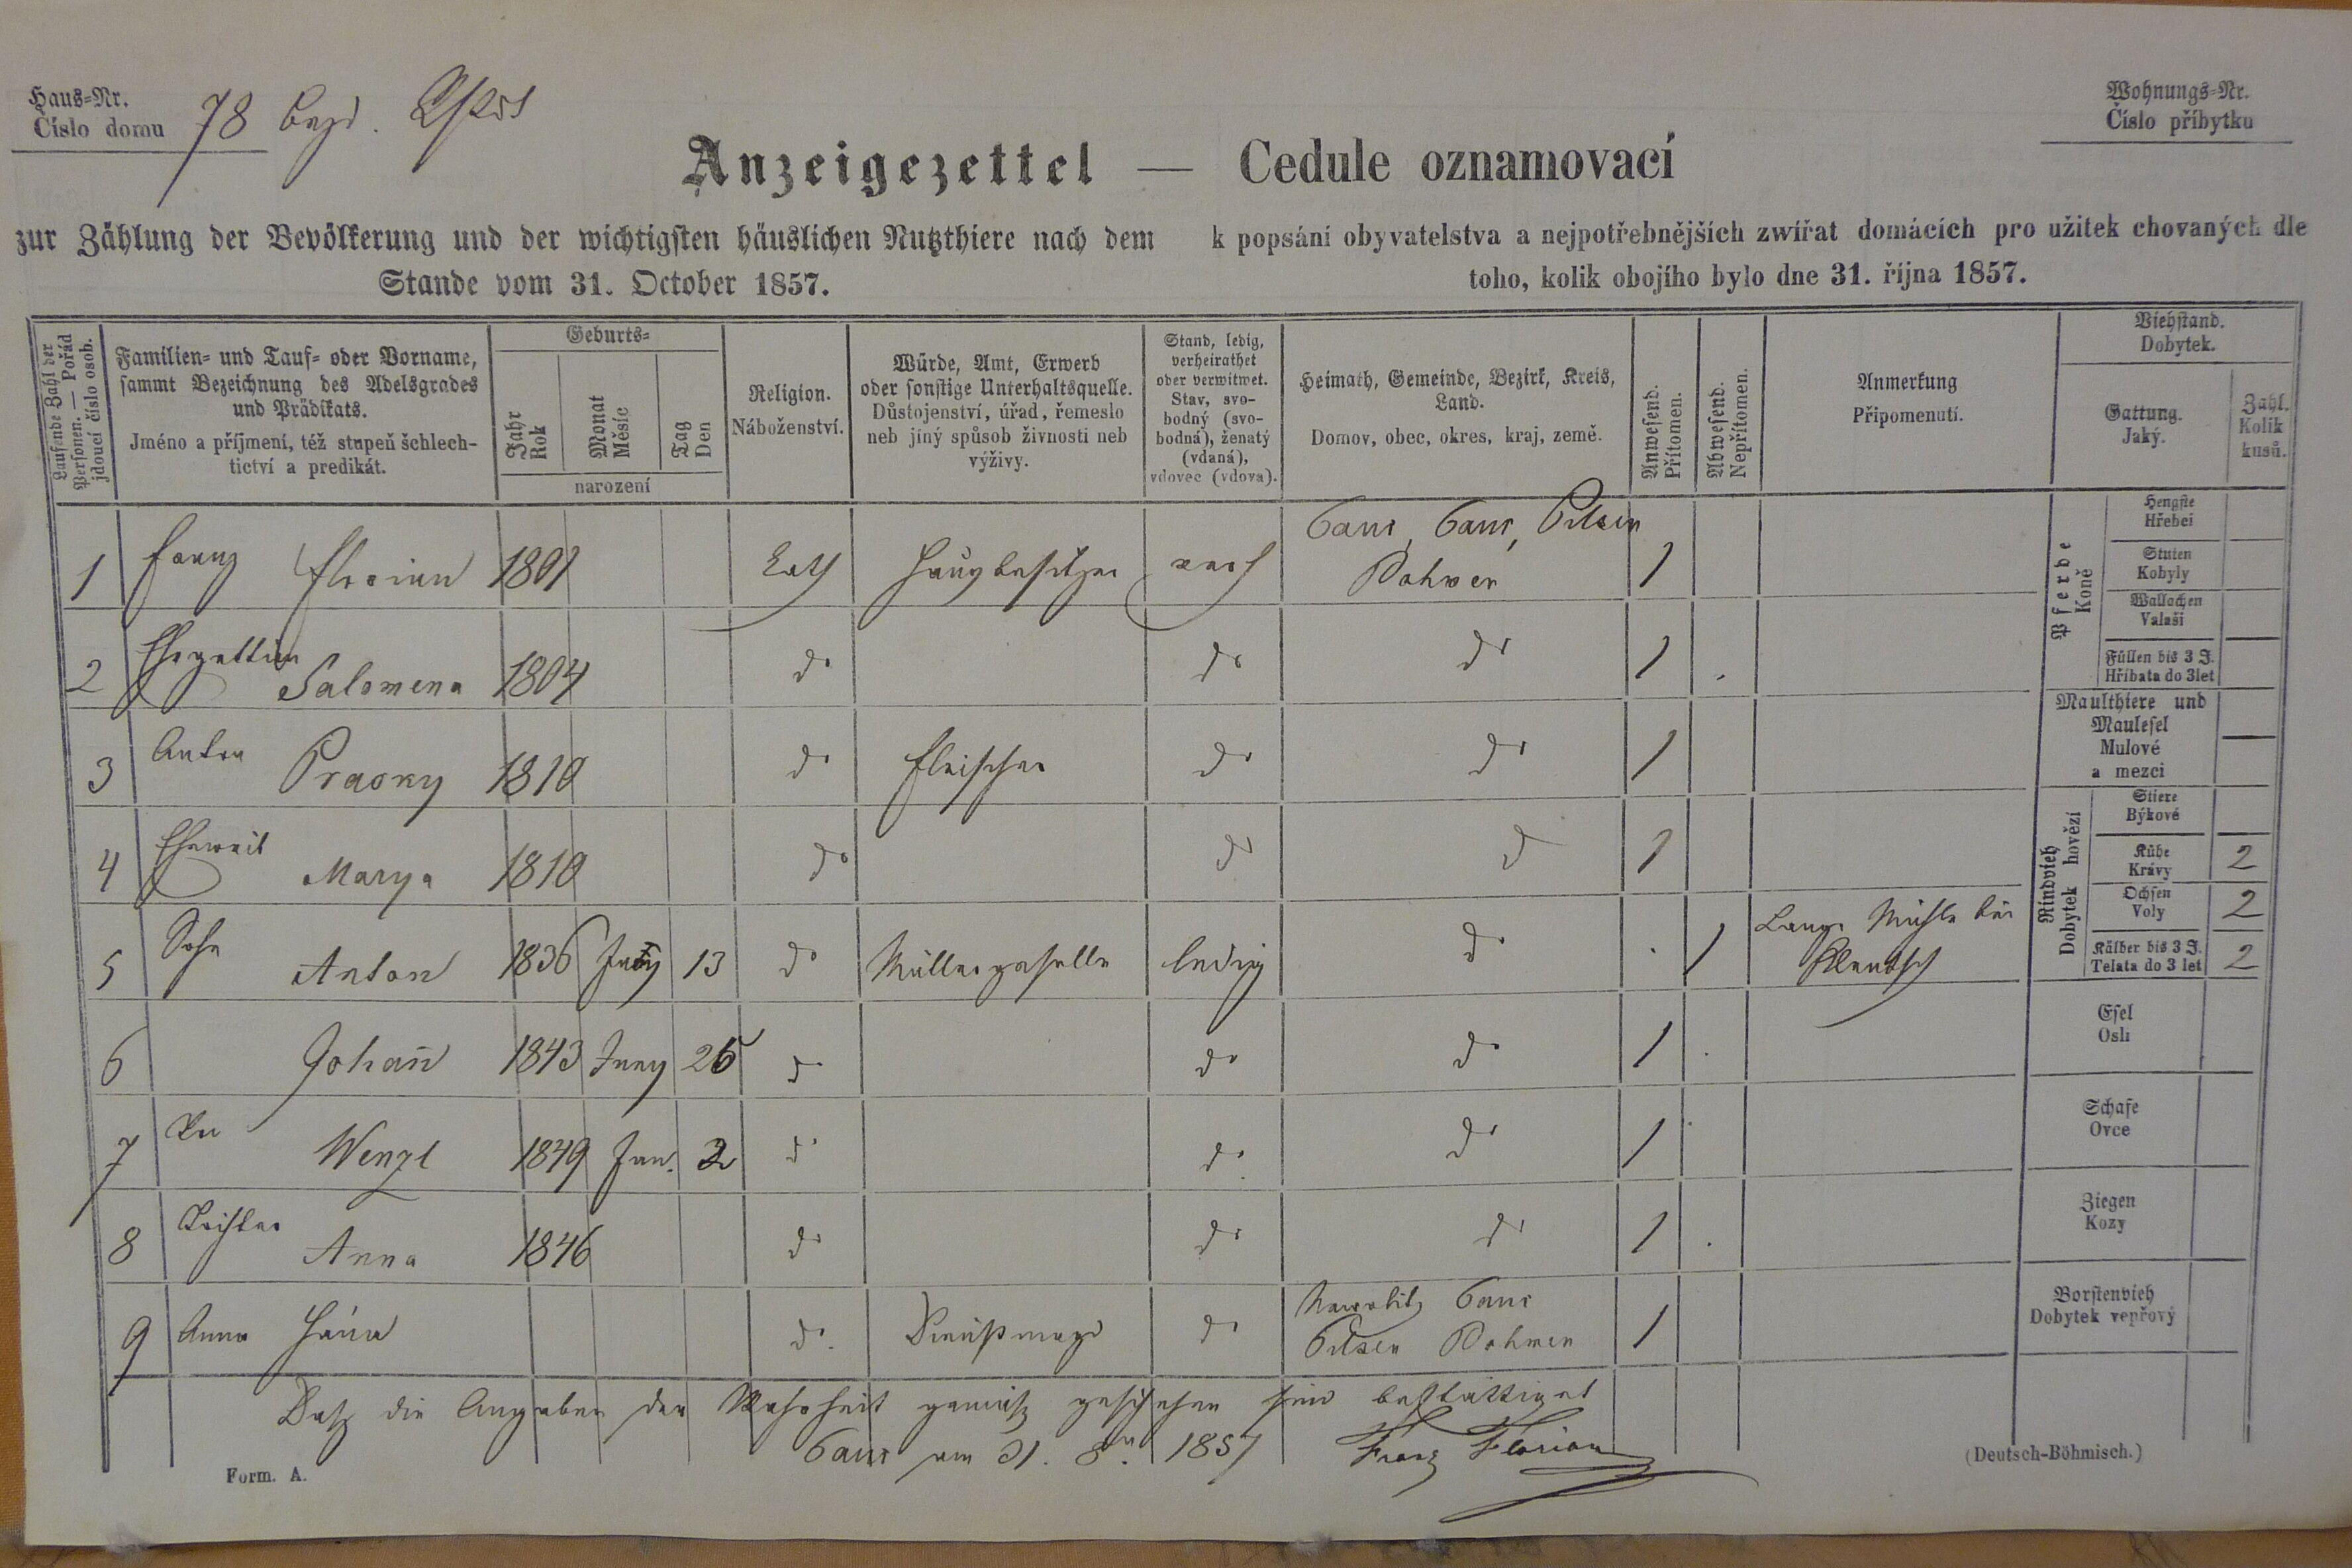 Haus-Nr.
Číslo domu 78
Wohnungs-Nr.
Číslo příbytku
Anzeigezettel — Cedule oznamovací
zur Zählung der Bevölkerung und der wichtigsten häuslichen Nutzthiere nach dem
Stande vom 31. October 1857.
k popsání obyvatelstva a nejpotřebnějších zwířat domácích pro užitek chovaných dle
toho, kolik obojího bylo dne 31. října 1857.
Laufende Zahl der
Personen. — Pořád
jdoucí číslo osob.
Familien- und Tauf- oder Vorname,
sammt Bezeichnung des Adelsgrades
und Prädikats.
Jméno a příjmení, též stupeň šchlech-
tictví a predikát.
Geburts-
Jahr
Rok
Monat
Měsíc
Tag
Den
narození
Religion.
Náboženství.
Würde, Amt, Erwerb
oder sonstige Unterhaltsquelle.
Důstojenství, úřad, řemeslo
neb jíný spůsob živnosti neb
výživy.
Stand, ledig,
verheirathet
oder verwitwet.
Stav, svo-
bodný (svo-
bodná), ženatý
(vdaná),
vdovec (vdova).
Heimath, Gemeinde, Bezirk, Kreis,
Land.
Domov, obec, okres, kraj, země.
Anwesend.
Přítomen.
Abwesend.
Nepřítomen.
Anmerkung
Připomenutí.
Viehstand.
Dobytek.
Gattung.
Jaký.
Zahl.
Kolik
kusů.
1 Franz Florian 1801 Kath Hausbesitzer verh Taus, Taus, Pilsen
Böhmen 1
2 Ehegattin Salomena 1804 do do do 1
3 Anton 1810 do Fleischer do do 1
4 Eheweib Marya 1810 do do do 1
5 Sohn Anton 1836 13 do Müllergeselle ledig do 1 Mühle bei
6 Johañ 1843 Juny 26 do do do 1
7 Wenzl 1849 Jan. 2 do do do 1
8 Tochter Anna 1846 do do do 1
9 Anna do Dienstmagd do Taus
Pilsen Böhmen 1
Pferde
Koně
Hengste
Hřebci
Stuten
Kobyly
Wallachen
Valaši
Füllen bis 3 J.
Hříbata do 3let
Maulthiere und
Maulesel
Mulové
a mezci
Rindvieh
Dobytek hovězí
Stiere
Býkové
Kühe
Krávy 2
Ochsen
Voly 2
Kälber bis 3 J.
Telata do 3 let 2
Esel
Osli
Schafe
Ovce
Ziegen
Kozy
Borstenvieh
Dobytek vepřový
Daß die Angaben der Wahrheit gemäß geschehen sind bestättiget
Taus am 31. 8er 1857 Franz Florian
Form. A.
(Deutsch-Böhmisch.)